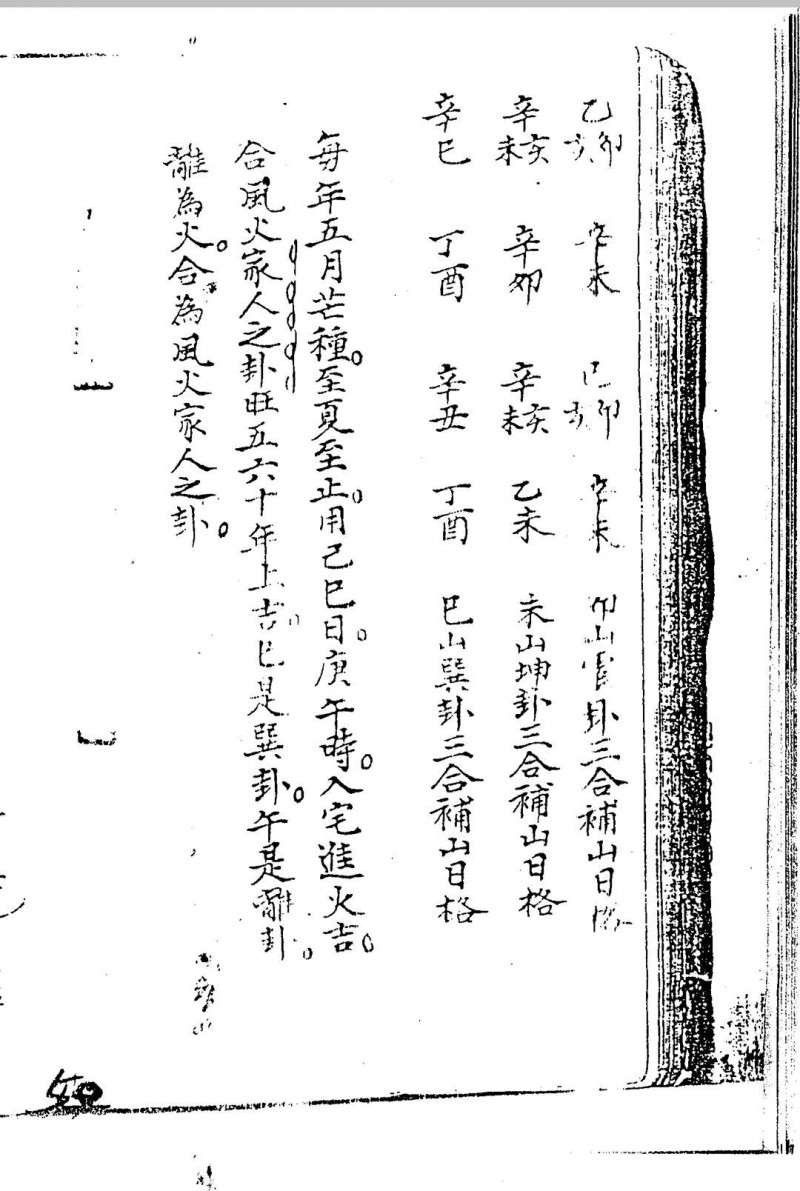 乙卯亥 辛未 己卯亥 辛未 卯山震卦三合補山日格
辛亥未 辛卯 辛亥未 乙未 未山坤卦三合補山日格
辛巳 丁酉 辛丑 丁酉 巳山巽卦三合補山日格
每年五月芒種。至夏至止。用己巳日。庚午時。入宅進火吉。
合風火家人之卦旺五六十年上吉。巳是巽卦。午是離卦。
離為火。合為風火家人之卦。